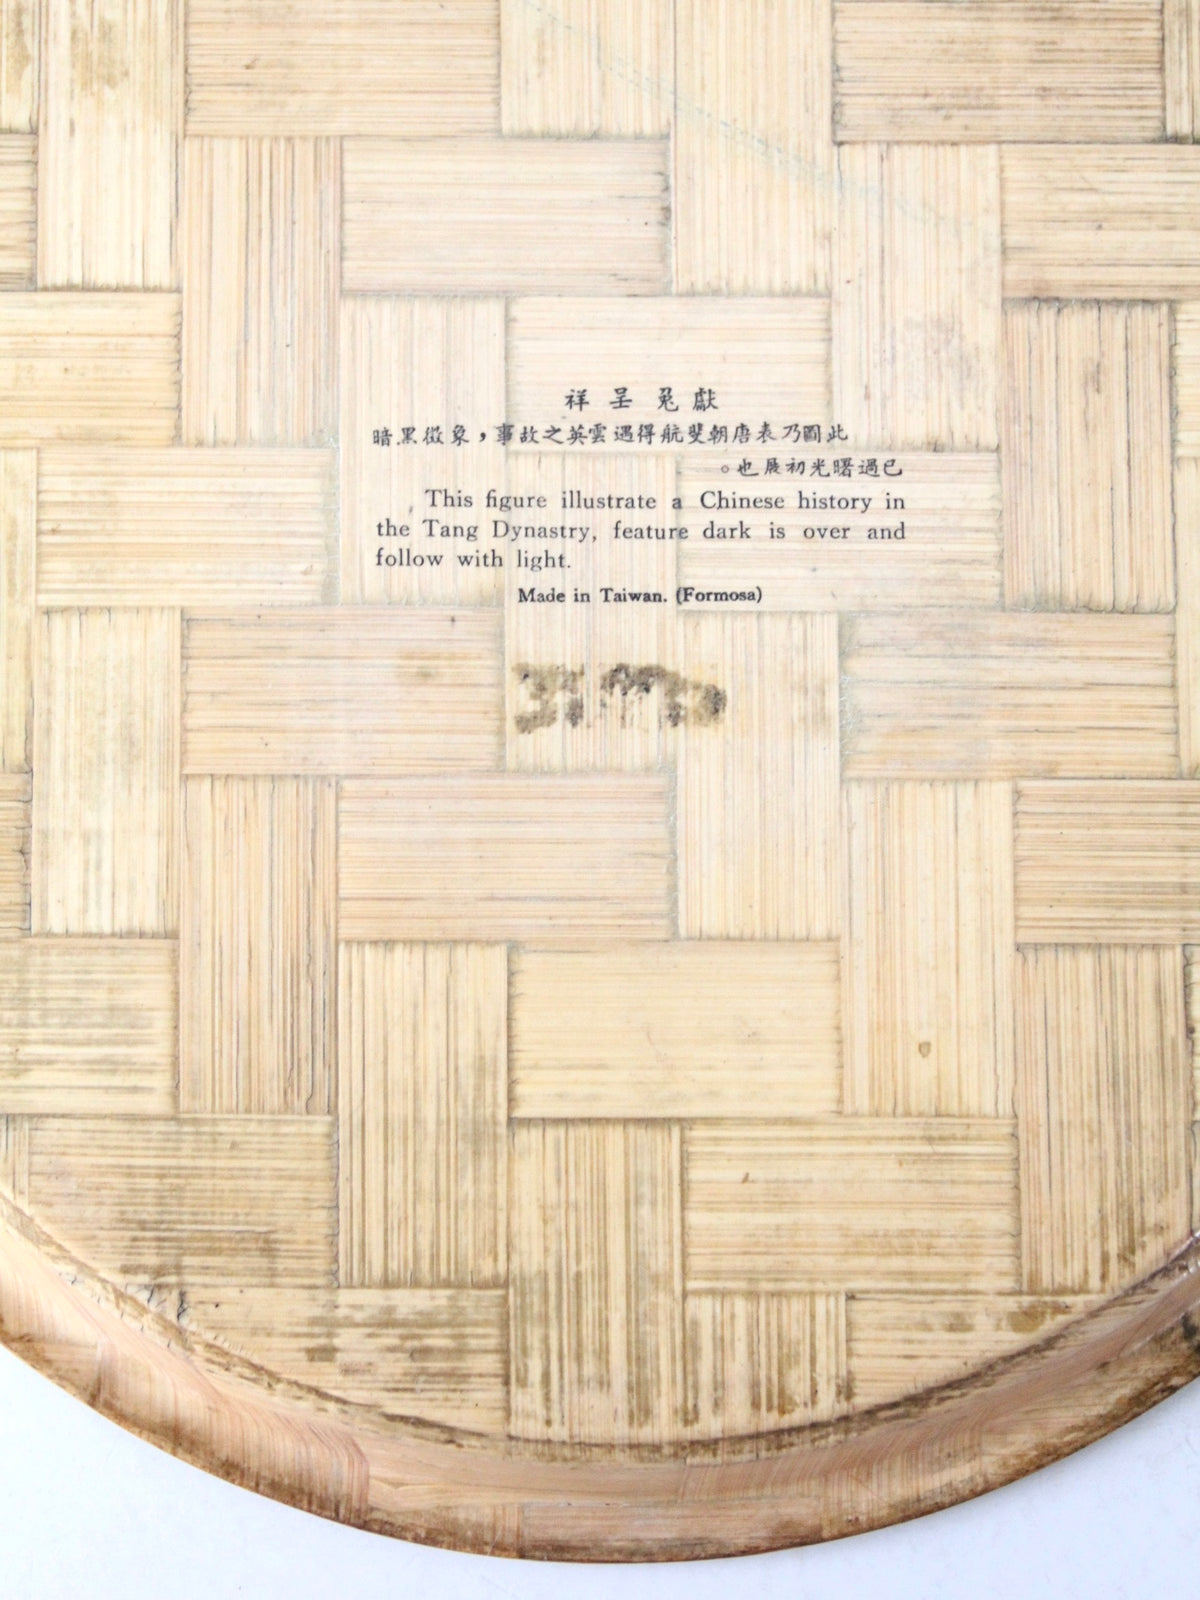 獻兔呈祥
此圖乃表唐朝斐航得遇雲英之故事，象徵黑暗
已過曙光初展也。
This figure illustrate a Chinese history in
the Tang Dynastry, feature dark is over and
follow with light.
Made in Taiwan. (Formosa)